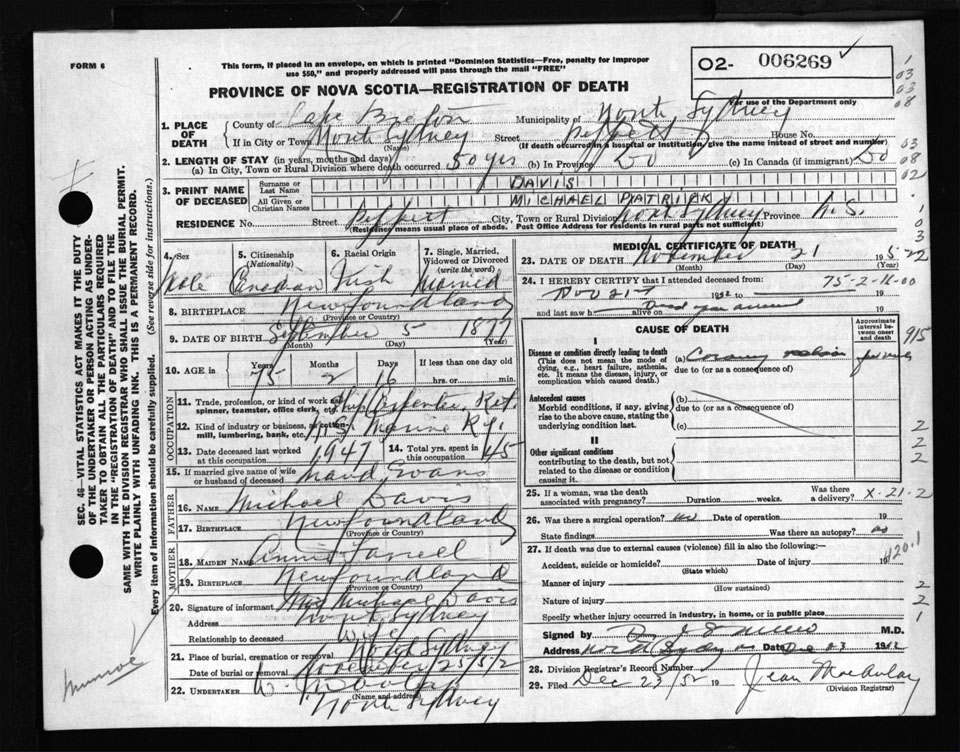 FORM 6
This form, if placed in an envelope, on which is printed "Dominion Statistics—Free, penalty for improper
use $50," and properly addressed will pass through the mail "FREE"
PROVINCE OF NOVA SCOTIA—REGISTRATION OF DEATH
O2- 006269
For use of the Department only
1. PLACE OF DEATH
County of Cape Breton Municipality of North Sydney
If in City or Town North Sydney Street Peppert House No.
(Name) (If death occurred in a hospital or institution, give the name instead of street and number)
2. LENGTH OF STAY (in years, months and days)
(a) In City, Town or Rural Division where death occurred 50 yrs (b) In Province Do (c) In Canada (if immigrant) Do
3. PRINT NAME OF DECEASED
Surname or Last Name DAVIS
All Given or Christian Names MICHAEL PATRICK
RESIDENCE No. Street Peppert City, Town or Rural Division North Sydney Province N.S.
(Residence means usual place of abode. Post Office Address for residents in rural parts not sufficient)
4. Sex Male
5. Citizenship (Nationality) Canadian
6. Racial Origin Irish
7. Single, Married, Widowed or Divorced (write the word) Married
8. BIRTHPLACE Newfoundland
(Province or Country)
9. DATE OF BIRTH September 5 1877
(Month) (Day) (Year)
10. AGE in Years 75 Months 2 Days 16 If less than one day old
hrs. or min.
OCCUPATION
11. Trade, profession, or kind of work as spinner, teamster, office clerk, etc. Carpenter Ret.
12. Kind of industry or business, as cotton-mill, lumbering, bank, etc. Marine Ry.
13. Date deceased last worked at this occupation 1947
14. Total yrs. spent in this occupation 45
15. If married give name of wife or husband of deceased Maud Evans
FATHER
16. NAME Michael Davis
17. BIRTHPLACE Newfoundland
(Province or Country)
MOTHER
18. MAIDEN NAME Annie Farrell
19. BIRTHPLACE Newfoundland
(Province or Country)
20. Signature of informant Mrs Michael Davis
Address North Sydney
Relationship to deceased Wife
21. Place of burial, cremation or removal North Sydney
Date of burial or removal November 25/52
22. UNDERTAKER
(Name and address)
North Sydney
MEDICAL CERTIFICATE OF DEATH
23. DATE OF DEATH November 21 1952
(Month) (Day) (Year)
24. I HEREBY CERTIFY that I attended deceased from:
Nov 21 1952 to 19
and last saw h alive on 19
75-2-16-00
CAUSE OF DEATH
Approximate interval between onset and death
I
Disease or condition directly leading to death
(This does not mean the mode of dying, e.g., heart failure, asthenia, etc. It means the disease, injury, or complication which caused death.)
(a) Coronary
due to (or as a consequence of)
Antecedent causes
Morbid conditions, if any, giving rise to the above cause, stating the underlying condition last.
(b)
due to (or as a consequence of)
(c)
II
Other significant conditions
contributing to the death, but not related to the disease or condition causing it.
25. If a woman, was the death associated with pregnancy? Duration weeks. Was there a delivery? X-21-2
26. Was there surgical operation? no Date of operation 19
State findings Was there an autopsy? no
27. If death was due to external causes (violence) fill in also the following:—
Accident, suicide or homicide? Date of injury 19
420.1
(State which)
Manner of injury
(How sustained)
Nature of injury
Specify whether injury occurred in industry, in home, or in public place
Signed by M.D.
Address North Sydney NS Date Dec 23 1952
28. Division Registrar's Record Number
29. Filed Dec 23/52 19 Jean MacAulay
(Division Registrar)
SEC. 46—VITAL STATISTICS ACT MAKES IT THE DUTY
OF THE UNDERTAKER OR PERSON ACTING AS UNDER-
TAKER TO OBTAIN ALL THE PARTICULARS REQUIRED
IN THE "REGISTRATION OF DEATH" AND TO FILE THE
SAME WITH THE DIVISION REGISTRAR WHO SHALL ISSUE THE BURIAL PERMIT.
WRITE PLAINLY WITH UNFADING INK. THIS IS A PERMANENT RECORD.
Every item of information should be carefully supplied. (See reverse side for instructions.)
Munroe
1
03
03
08
03
08
02
1
0
3
22
915
2
2
2
2
2
1